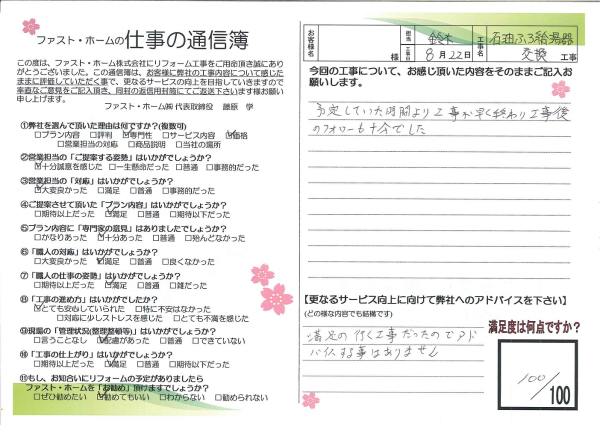 ファスト・ホームの仕事の通信簿
この度は、ファスト・ホーム株式会社にリフォーム工事をご用命頂き誠にあり
がとうございました。この通信簿は、お客様に弊社の工事内容について感じた
ままに評価していただく事で、更なるサービスの向上を目指していきますので
率直なご意見をご記入頂き、同封の返信用封筒にてご返送下さいます様お願い
申し上げます。
ファスト・ホーム㈱ 代表取締役 藤原 学
①弊社を選んで頂いた理由は何ですか?(複数可)
□プラン内容 □評判 ☑専門性 □サービス内容 ☑価格
□営業担当者の対応 □商品説明 □当社の場所
②営業担当の「ご提案する姿勢」はいかがでしょうか?
☑十分誠意を感じた □一生懸命だった □普通 □事務的だった
③営業担当の「対応」はいかがでしょうか?
☑大変良かった □満足 □普通 □事務的だった
④ご提案させて頂いた「プラン内容」はいかがでしょうか?
□期待以上だった ☑満足 □普通 □期待以下だった
⑤プラン内容に「専門家の意見」はありましたでしょうか?
□かなりあった ☑十分あった □普通 □殆んどなかった
⑥「職人の対応」はいかがでしょうか?
□大変良かった ☑満足 □普通 □良くなかった
⑦「職人の仕事の姿勢」はいかがでしょうか?
□期待以上だった ☑満足 □普通 □雑だった
⑧「工事の進め方」はいかがでしたか?
☑とても安心していられた □特に不安はなかった
□対応に少しストレスを感じた □とても不満を感じた
⑨現場の「管理状況(整理整頓等)」はいかがでしょうか?
□言うことなし ☑配慮があった □普通 □できていない
⑩「工事の仕上がり」はいかがでしょうか?
□期待以上だった ☑満足 □普通 □期待以下だった
⑪もし、お知合いにリフォームの予定がありましたら
ファスト・ホームを「お勧め」頂けますでしょうか?
□ぜひ勧めたい ☑勧めてもいい □わからない □勧められない
お客様名 様
担当 鈴木
工事日 8月22日
工事名 石油ふろ給湯器
交換 工事
今回の工事について、お感じ頂いた内容をそのままご記入お
願いします。
予定していた時間より工事が早く終わり工事後
のフォローも十分でした
【更なるサービス向上に向けて弊社へのアドバイスを下さい】
(どの様な内容でも結構です)
満足の行く工事だったのでアド
バイスする事はありません
満足度は何点ですか?
100/
/100